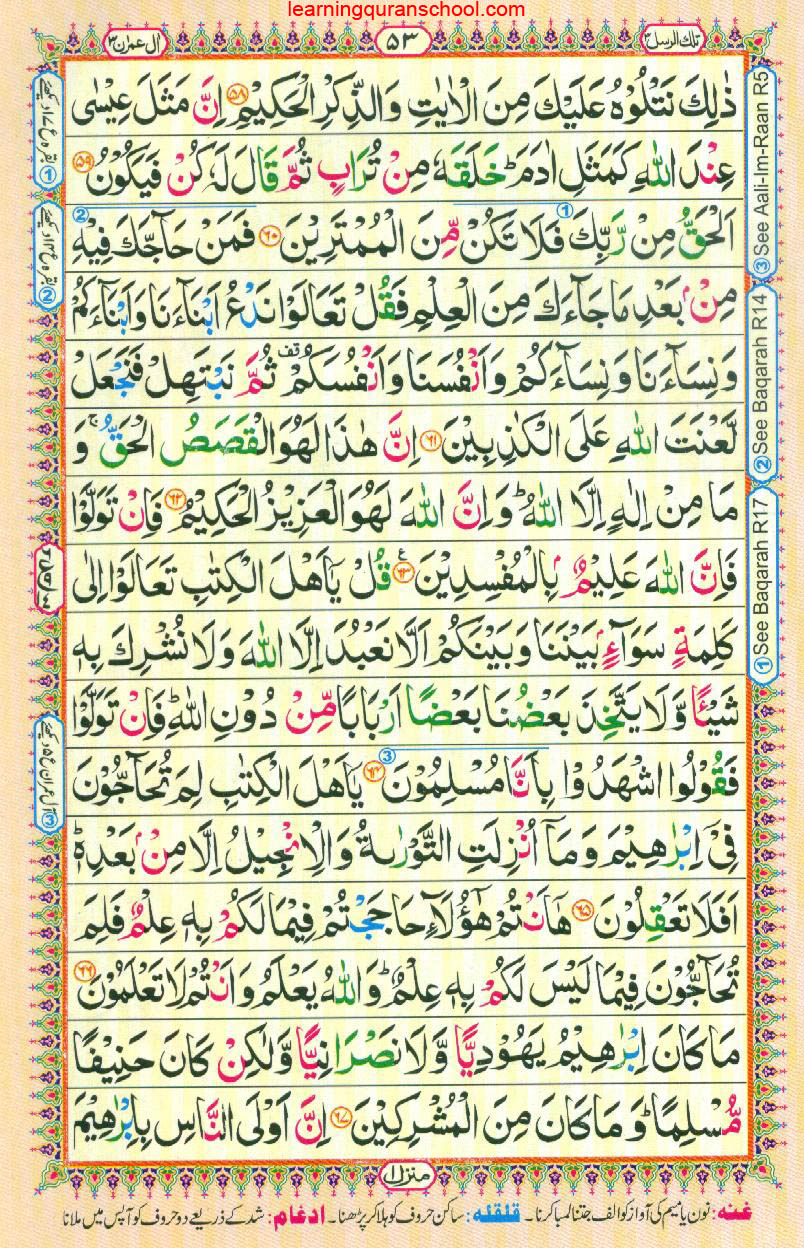 learningquranschool.com
تلك الرسل ٣
٥٣
ال عمرٰن ٣
ذٰلِكَ نَتْلُوْهُ عَلَيْكَ مِنَ الْاٰيٰتِ وَالذِّكْرِ الْحَكِيْمِ ﴿٥٨﴾ اِنَّ مَثَلَ عِيْسٰى
عِنْدَ اللّٰهِ كَمَثَلِ اٰدَمَ ؕ خَلَقَهٗ مِنْ تُرَابٍ ثُمَّ قَالَ لَهٗ كُنْ فَيَكُوْنُ ﴿٥٩﴾
اَلْحَقُّ مِنْ رَّبِّكَ فَلَا تَكُنْ مِّنَ الْمُمْتَرِيْنَ ﴿٦٠﴾ فَمَنْ حَآجَّكَ فِيْهِ
مِنْۢ بَعْدِ مَا جَآءَكَ مِنَ الْعِلْمِ فَقُلْ تَعَالَوْا نَدْعُ اَبْنَآءَنَا وَاَبْنَآءَكُمْ
وَنِسَآءَنَا وَنِسَآءَكُمْ وَاَنْفُسَنَا وَاَنْفُسَكُمْ قف ثُمَّ نَبْتَهِلْ فَنَجْعَلْ
لَّعْنَتَ اللّٰهِ عَلَى الْكٰذِبِيْنَ ﴿٦١﴾ اِنَّ هٰذَا لَهُوَ الْقَصَصُ الْحَقُّ ۚ وَ
مَا مِنْ اِلٰهٍ اِلَّا اللّٰهُ ؕ وَاِنَّ اللّٰهَ لَهُوَ الْعَزِيْزُ الْحَكِيْمُ ﴿٦٢﴾ فَاِنْ تَوَلَّوْا
فَاِنَّ اللّٰهَ عَلِيْمٌۢ بِالْمُفْسِدِيْنَ ﴿٦٣﴾ ع قُلْ يٰۤاَهْلَ الْكِتٰبِ تَعَالَوْا اِلٰى
كَلِمَةٍ سَوَآءٍۢ بَيْنَنَا وَبَيْنَكُمْ اَلَّا نَعْبُدَ اِلَّا اللّٰهَ وَلَا نُشْرِكَ بِهٖ
شَيْئًا وَّلَا يَتَّخِذَ بَعْضُنَا بَعْضًا اَرْبَابًا مِّنْ دُوْنِ اللّٰهِ ؕ فَاِنْ تَوَلَّوْا
فَقُوْلُوا اشْهَدُوْا بِاَنَّا مُسْلِمُوْنَ ﴿٦٤﴾ يٰۤاَهْلَ الْكِتٰبِ لِمَ تُحَآجُّوْنَ
فِيْۤ اِبْرٰهِيْمَ وَمَاۤ اُنْزِلَتِ التَّوْرٰىةُ وَالْاِنْجِيْلُ اِلَّا مِنْۢ بَعْدِهٖ ؕ
اَفَلَا تَعْقِلُوْنَ ﴿٦٥﴾ هٰۤاَنْتُمْ هٰۤؤُلَآءِ حَاجَجْتُمْ فِيْمَا لَكُمْ بِهٖ عِلْمٌ فَلِمَ
تُحَآجُّوْنَ فِيْمَا لَيْسَ لَكُمْ بِهٖ عِلْمٌ ؕ وَاللّٰهُ يَعْلَمُ وَاَنْتُمْ لَا تَعْلَمُوْنَ ﴿٦٦﴾
مَا كَانَ اِبْرٰهِيْمُ يَهُوْدِيًّا وَّلَا نَصْرَانِيًّا وَّلٰكِنْ كَانَ حَنِيْفًا
مُّسْلِمًا ؕ وَمَا كَانَ مِنَ الْمُشْرِكِيْنَ ﴿٦٧﴾ اِنَّ اَوْلَى النَّاسِ بِاِبْرٰهِيْمَ
③ See Aali-Im-Raan R5
② See Baqarah R14
① See Baqarah R17
منزل ١
غنه: نون یا میم کی آواز کو الف جتنا لمبا کرنا۔ قلقله: ساکن حروف کو ہلا کر پڑھنا۔ ادغام: شد کے ذریعے دو حروف کو آپس میں ملانا